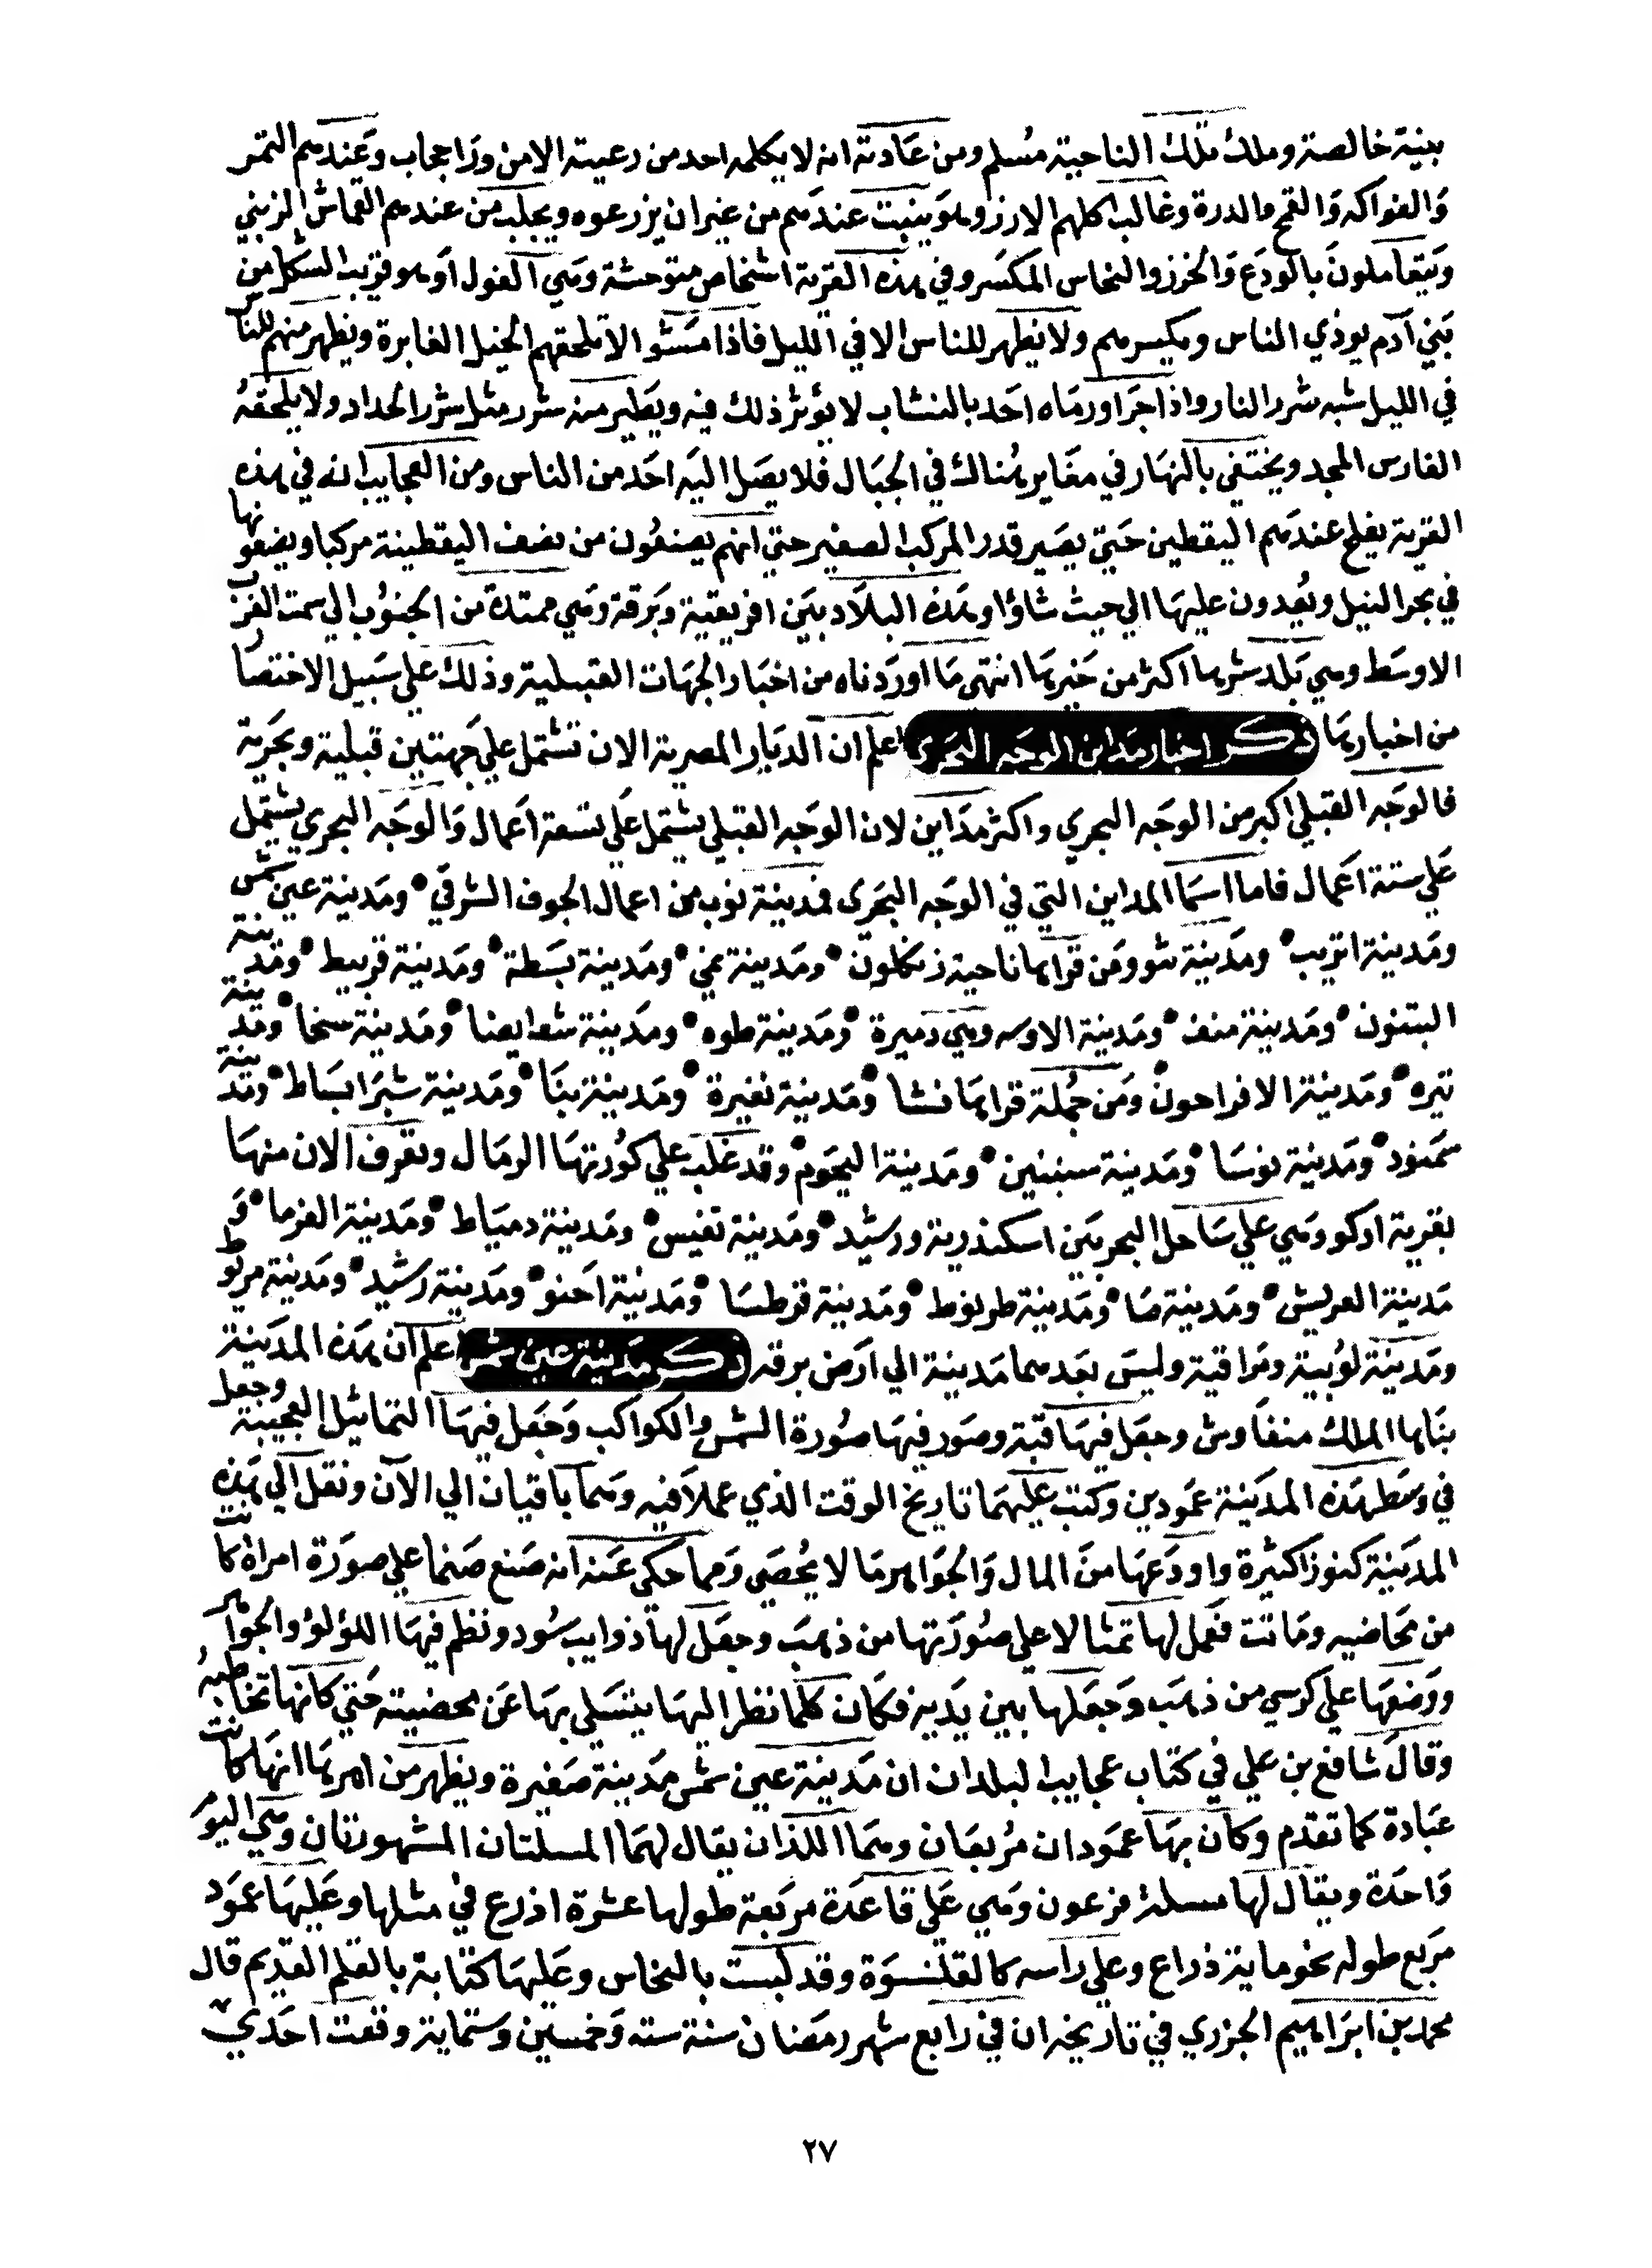 بنية خالصة وملك تلك الناحية مسلم ومن عادته انه لا يكلمه احد من رعيته الا من وراحجاب وعندهم التمر
والفواكه والقمح والدرة وغالب اكلهم الارز وهو ينبت عندهم من غير ان يزرعوه ويجلب من عندهم القماش الزيني
ويتعاملون بالودع والخرز والنحاس المكسر وفي هذه القرية اشخاص متوحشة وهي الغول او هو قريب الشكل من
بني آدم يوذي الناس ويكبسهم ولا يظهر للناس الا في الليل فاذا مشو الا تلحقهم الخيل الغايرة ويظهر منهم للناس
في الليل شبه شرر النار واذا جرا ورماه احد بالنشاب لا يؤثر ذلك فيه ويطير منه شرر مثل شرر الحداد ولا يلحقه
الفارس المجد ويختفي بالنهار في مغاير هناك في الجبال فلا يصل اليه احد من الناس ومن العجايب انه في هذه
القرية يفلح عندهم اليقطين حتي يصير قدر المركب الصغير حتي انهم يصنعون من نصف اليقطينة مركبا ويضعونها
في بحر النيل ويعدون عليها الي حيث شاؤا وهذه البلاد بين افريقية وبرقة وهي ممتدة من الجنوب الي سمت الغرب
الاوسط وهي بلد شرها اكثر من خيرها انتهي ما اوردناه من اخبار الجهات القبلية وذلك علي سبيل الاختصار
من اخبارها ذكر اخبار مداين الوجه البحري اعلم ان الديار المصرية الان تشتمل علي جهتين قبلية وبحرية
فالوجه القبلي اكبر من الوجه البحري واكثر مداين لان الوجه القبلي يشتمل علي تسعة اعمال والوجه البحري يشتمل
علي ستة اعمال فاما اسما المداين التي في الوجه البحري فمدينة نوب من اعمال الجوف الشرقي ومدينة عين شمس
ومدينة اتريب ومدينة تنوو ومن قراها ناحية زنكلون ومدينة نمي ومدينة بسطة ومدينة قربيط ومدينة
البتنون ومدينة منف ومدينة الاوسه وهي دميرة ومدينة طوه ومدينة شعا يضا ومدينة سخا ومدينة
تيره ومدينة الافراحون ومن جملة قراها نشا ومدينة نغيرة ومدينة بنا ومدينة شبرا بساط ومدينة
سمنود ومدينة نوسا ومدينة سبنين ومدينة البحوم وقد غلب علي كورتها الرمال وتعرف الان منها
بقرية ادكو وهي علي ساحل البحر بين اسكندرية ورشيد ومدينة تنيس ومدينة دمياط ومدينة الفرما و
مدينة العريش ومدينة صا ومدينة طرنوط ومدينة قرطسا ومدينة احنو ومدينة رشيد ومدينة مريوط
ومدينة لوبية ومراقية وليس بعدهما مدينة الي ارض برقه ذكر مدينة عين شمس اعلم ان هذه المدينة
بناها الملك منفاوش وجعل فيها قبة وصور فيها صورة الشمس والكواكب وجعل فيها التماثيل العجيبة وجعل
في وسط هذه المدينة عمودين وكتب عليهما تاريخ الوقت الذي عملا فيه وهما باقيان الي الآن ونقل الي هذه
المدينة كنوزا كثيرة واودعها من المال والجواهر ما لا يحصي ومما حكي عنه انه صنع صنما علي صورة امراة كانت
من محاضيه وماتت فعمل لها تمثالا علي صورتها من ذهب وجعل لها ذوايب سود ونظم فيها اللؤلؤ والجواهر
ووضعها علي كرسي من ذهب وجعلها بين يديه فكان كلما نظر اليها يتسلي بها عن محضيته حتي كانها تخاطبه
وقال شافع بن علي في كتاب عجايب البلدان ان مدينة عين شمس مدينة صغيرة ويظهر من امرها انها كانت
عبادة كما تقدم وكان بها عمودان مربعان وهما اللذان يقال لهما المسلتان المشهورتان وهي اليوم
واحدة ويقال لها مسلة فرعون وهي علي قاعدة مربعة طولها عشرة اذرع في مثلها وعليها عمود
مربع طوله نحو ماية ذراع وعلي راسه كالقلنسوة وقد لبست بالنحاس وعليها كتابة بالقلم القديم قال
محمد بن ابراهيم الجزري في تاريخه ان في رابع شهر رمضان سنة سته وخمسين وستماية وقعت احدي
٢٧